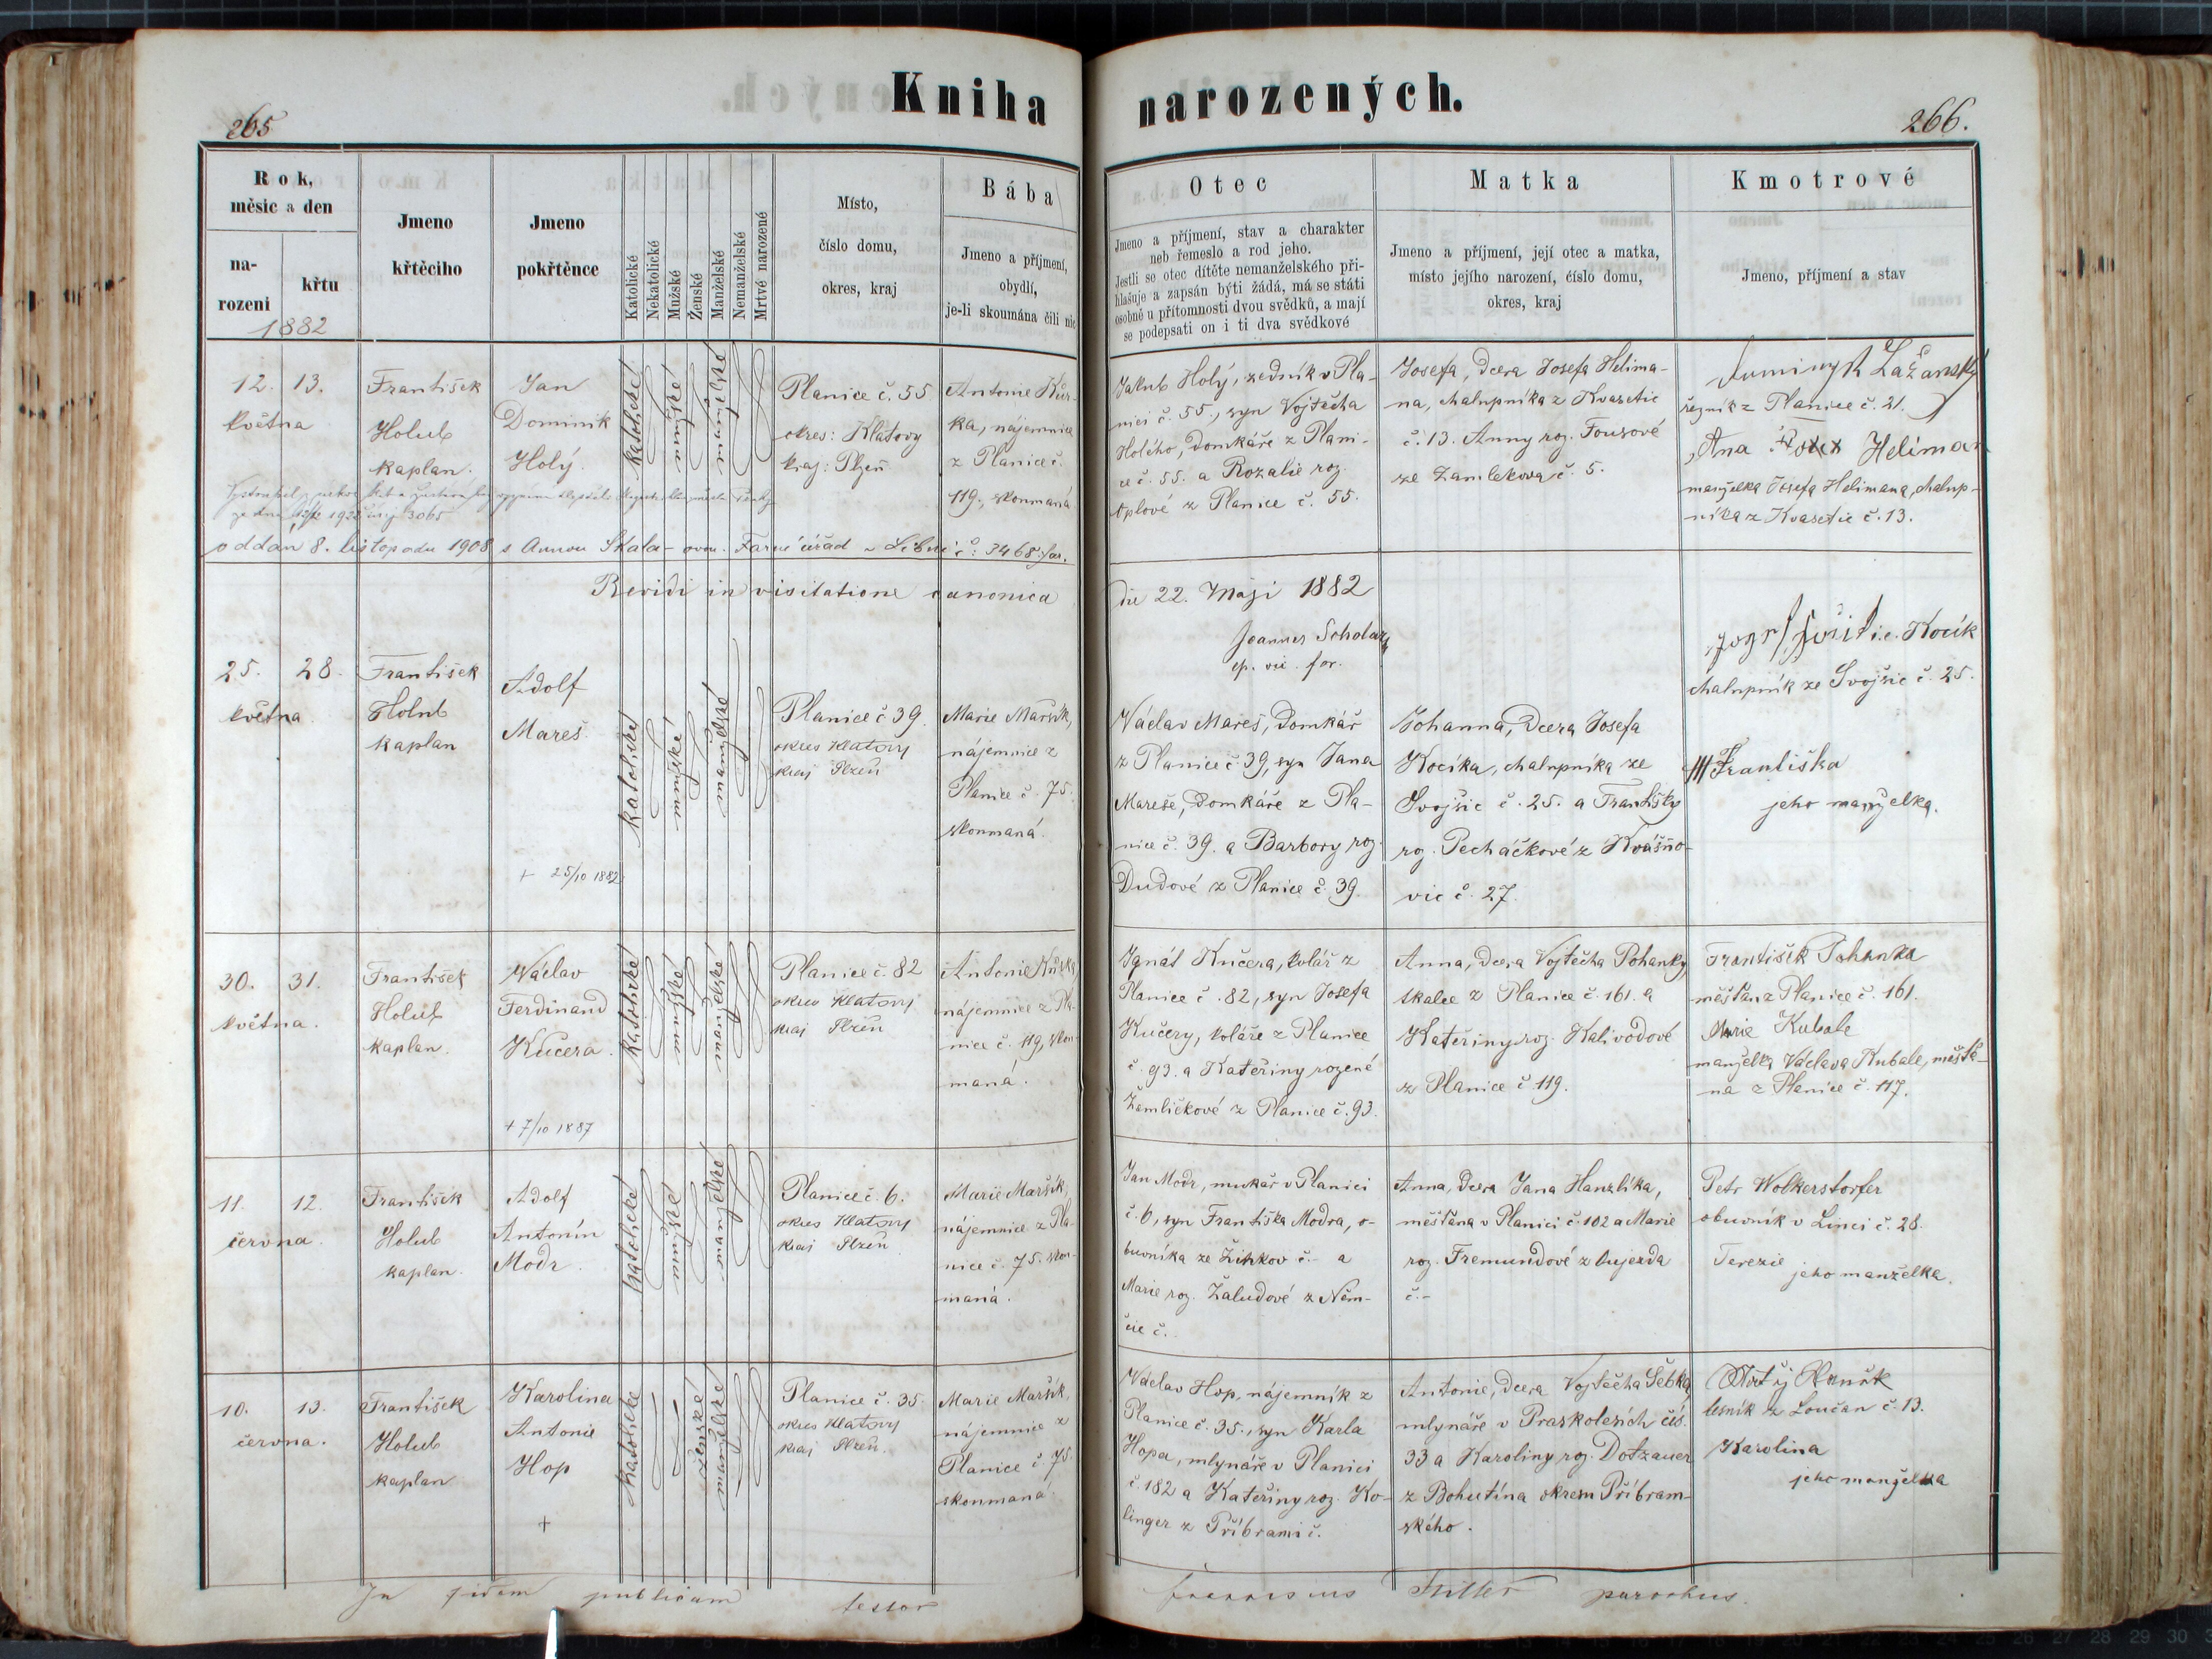 Kniha narozených.
265
266.
Rok,
měsíc a den
na-
rozeni
křtu
1882
Jmeno
křtěcího
Jmeno
pokřtěnce
Katolické
Nekatolické
Mužské
Ženské
Manželské
Nemanželské
Mrtvé narozené
Místo,
číslo domu,
okres, kraj
Bába
Jmeno a příjmení,
obydlí,
je-li skoumána čili nic
Otec
Jmeno a příjmení, stav a charakter
neb řemeslo a rod jeho.
Jestli se otec dítěte nemanželského při-
hlašuje a zapsán býti žádá, má se státi
osobně u přítomnosti dvou svědků, a mají
se podepsati on i ti dva svědkové
Matka
Jmeno a příjmení, její otec a matka,
místo jejího narození, číslo domu,
okres, kraj
Kmotrové
Jmeno, příjmení a stav
12. 13.
května
František
Holub
kaplan.
Jan
Dominik
Holý.
katolické
mužské
manželské
Planice č. 55
okres: Klatovy
kraj: Plzeň
Antonie Kůr-
ka, nájemnice
z Planice č.
119, skoumaná
Jakub Holý, zedník v Pla-
nici č. 55., syn Vojtěcha
Holého, domkáře z Plani-
ce č. 55. a Rozalie roz.
Oplové z Planice č. 55.
Josefa, dcera Josefa Helima-
na, chalupníka z Kvasetic
č. 13. Anny roz. Fousové
ze Zamlekova č. 5.
Dominyk Lažanský
řezník z Planice č. 21.
Ana Heliman
manželka Josefa Helimana, chalup-
níka z Kvasetic č. 13.
oddán 8. listopadu 1908 s Annou Skala-ovou. Farní úřad v Libni č: 3468 far.
Revidi in visitatione canonica
die 22. Maji 1882
Joannes
ep. vic. for.
25. 28.
května
František
Holub
kaplan
Adolf
Mareš
+ 25/10 1882
katolické
mužské
manželské
Planice č 39.
okres Klatovy
kraj Plzeň
Marie Maršík,
nájemnice z
Planice č. 75.
skoumaná.
Václav Mareš, domkář
z Planice č. 39, syn Jana
Mareše, domkáře z Pla-
nice č. 39. a Barbory roz.
Dudové z Planice č. 39.
Johanna, dcera Josefa
Kocíka, chalupníka ze
Svojšic č. 25. a Františky
roz. Pecháčkové z Kvášňo-
vic č. 27.
i.e. Kocík
chalupník ze Svojšic č. 25.
Františka
jeho manželka.
30. 31.
května.
František
Holub
kaplan.
Václav
Ferdinand
Kučera.
+ 7/10 1887
katolické
mužské
manželské
Planice č. 82
okres Klatovy
kraj Plzeň
Antonie Kůrka
nájemnice z Pla-
nice č. 119, skou-
maná.
Ignát Kučera, kolář z
Planice č. 82, syn Josefa
Kučery, koláře z Planice
č. 93. a Kateřiny rozené
Žemličkové z Planice č. 93.
Anna, dcera Vojtěcha Pohanky
tkalce z Planice č. 161. a
Kateřiny roz. Kalivodové
z Planice č 119.
František Pohanka
měšťan z Planice č. 161.
Marie Kubale
manželka Václava Kubale, měšťa-
na z Planice č. 117.
11. 12.
června.
František
Holub
kaplan.
Adolf
Antonín
Modr.
katolické
mužské
manželské
Planice č. 6.
okres Klatovy
kraj Plzeň
Marie Maršík,
nájemnice z Pla-
nice č. 75. skou-
maná.
Jan Modr, mukař v Planici
č. 6, syn Františka Modra, o-
buvníka ze Žinkov č.- a
Marie roz. Žaludové z Něm-
čic č.
Anna, dcera Jana Hanzlíka,
měšťana v Planici č. 102 a Marie
roz. Fremundové z Oujezda
č.-
Petr Wolkerstorfer
obuvník v Linci č. 28.
Terezie
jeho manželka.
10. 13.
června.
František
Holub
kaplan
Karolina
Antonie
Hop
+
katolické
ženské
manželské
Planice č. 35.
okres Klatovy
kraj Plzeň.
Marie Maršík,
nájemnice z
Planice č 75.
skoumaná.
Václav Hop, nájemník z
Planice č. 35., syn Karla
Hopa, mlynáře v Planici
č. 182 a Kateřiny roz. Ko-
linger z Příbrami č.
Antonie, dcera Vojtěcha Šebka
mlynáře v Praskolesích čís.
33 a Karoliny roz. Dotzauer
z Bohutína okresu Příbram-
ského.
Matěj
lesník z Loučan č. 13.
Karolina
jeho manželka
In fidem publicam testor
parochus.